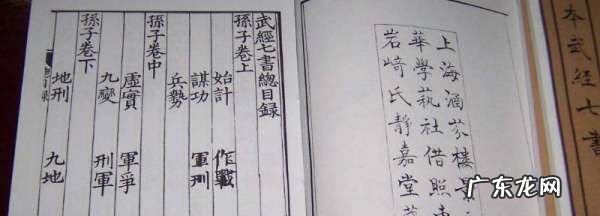 本武經七書
上海涵芬樓景
華學萟社借照東
岩﨑氏靜嘉堂
武經七書總目錄
孫子卷上
始計 作戰
謀功 軍刑
兵勢
孫子卷中
虛實 軍爭
九變 刑軍
孫子卷下
地刑 九地
广东龙网